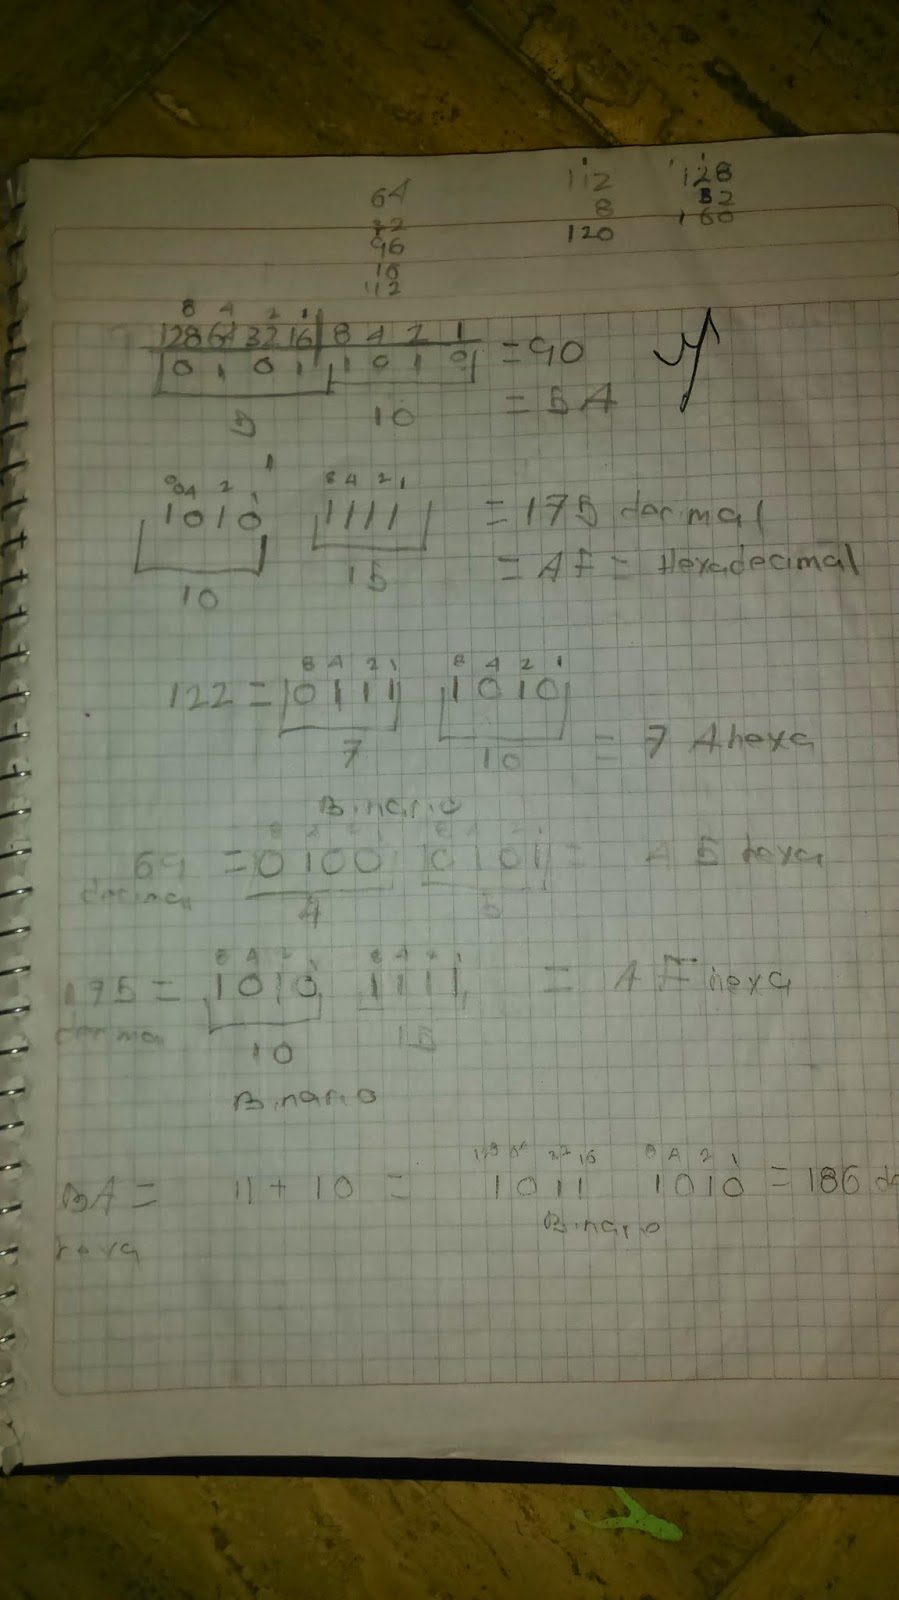 64
32
96
16
112
112
8
120
128
32
160
8 4 2 1
128 64 32 16 8 4 2 1
0 1 0 1 1 0 1 0 = 90
5 10 = 5A
8 4 2 1 8 4 2 1
1010 1111 = 175 decimal
10 15 = AF = Hexadecimal
8 4 2 1 8 4 2 1
122 = 0111 1010
7 10 = 7 A hexa
Binario
8 4 2 1 8 4 2 1
69 = 0100 0101 = 45 hexa
decimal 4 5
8 4 2 1 8 4 2 1
175 = 1010 1111 = AF hexa
decimal 10 15
Binario
128 64 32 16 8 4 2 1
BA = 11 + 10 = 1011 1010 = 186 de
hexa Binario